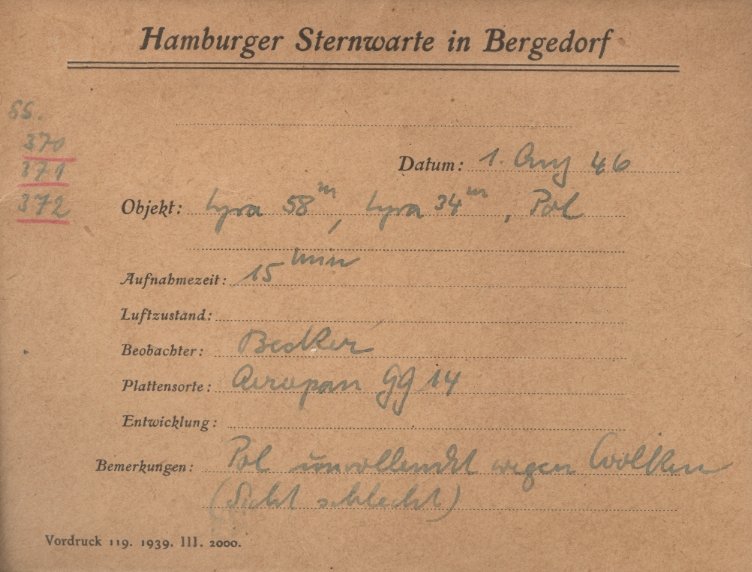 Hamburger Sternwarte in Bergedorf
SS.
370
371
372
Datum: 1. Aug 46
Objekt: Lyra 58ᵐ, Lyra 34ᵐ, Pol
Aufnahmezeit: 15 min
Luftzustand:
Beobachter: Becker
Plattensorte: Aeropan GG 14
Entwicklung:
Bemerkungen: Pol unvollendet wegen Wolken
(Sicht schlecht)
Vordruck 119. 1939. III. 2000.